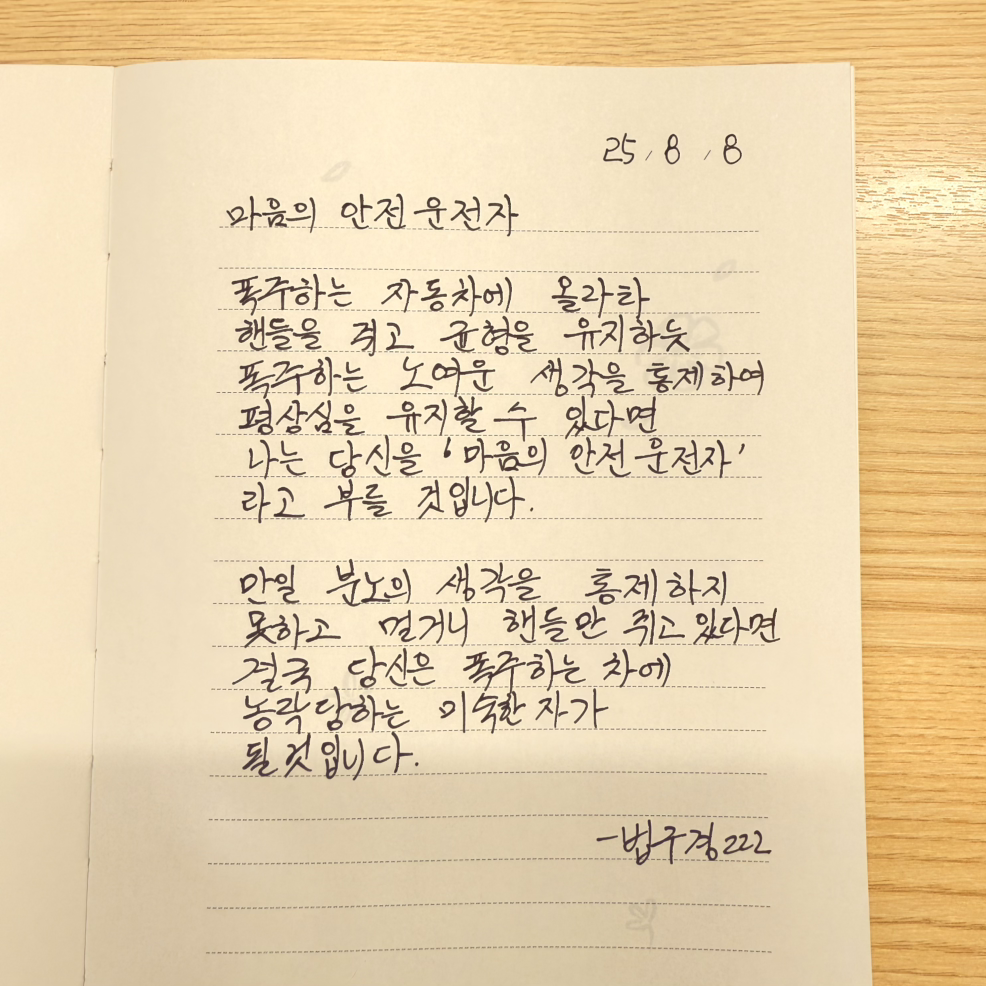 25. 8. 8
마음의 안전 운전자
폭주하는 자동차에 올라타
핸들을 쥐고 균형을 유지하듯
폭주하는 노여운 생각을 통제하여
평상심을 유지할 수 있다면
나는 당신을 '마음의 안전 운전자'
라고 부를 것입니다.
만일 분노의 생각을 통제하지
못하고 멀거니 핸들만 쥐고 있다면
결국 당신은 폭주하는 차에
농락당하는 미숙한 자가
될 것입니다.
-법구경 222